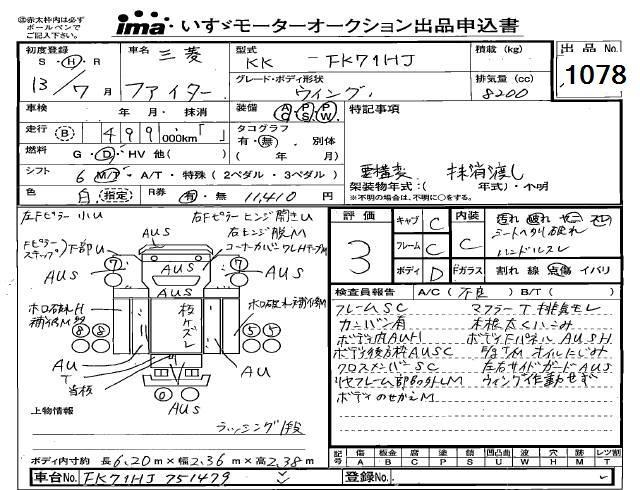 赤太枠内は必ず ボールペンで ご記入下さい。
ima いすゞモーターオークション出品申込書
出品No. 1078
初度登録 S・H・R 13/7月
車名 三菱 ファイター
型式 KK - FK71HJ
積載 (kg)
グレード・ボディ形状 ウイング
排気量 (cc) 8200
車検 年・月・抹消
装備 AC PS PW
特記事項
走行 B 499,000km「 」
タコグラフ 有・無・別体 ( 年 月)
燃料 G・D・HV 他( )
シフト 6 M/T・A/T・特殊(2ペダル・3ペダル)
要構変 抹消渡し
架装物年式:( 年式)・不明
※不明の場合は、不明に○をする。
色 白 指定 R券 有・無 11,410 円
左Fピラー小U
右Fピラーヒンジ開きU
右ヒンジ脱M
コーナーカバーワレH
Fピラー ステップ 下部U
AUS
評価 3
キャブ C
フレーム C
ボディ D
内装 C
Fガラス
汚れ 破れ ヤニ スレ
シートヘタリ破れ
ハンドルスレ
割れ 線 点傷 イバリ
検査員報告 A/C(不良) B/T( )
フレームSC マフラーT排気モレ
カンバン有 木根太くさみ
ボディ内AUH ボディFパネルAUSH
ボディ後方枠AUSC オイルにじみ
クロスメンバSC 左右サイドガードAUS
リヤフレーム部分LM ウィング作動せず
ボディのせかM
ホロ破れH 補修M
板ケズレ
AU T 当板
AU
AUS
上物情報
ラッシング1段
ボディ内寸約 長6.20m×幅2.36m×高2.38m
記号 傷A 板金B 腐C 塗P 錆S 凹凸曲U 波W 穴H 跡M レンズ割T
車台No. FK71HJ 751479
登録No.